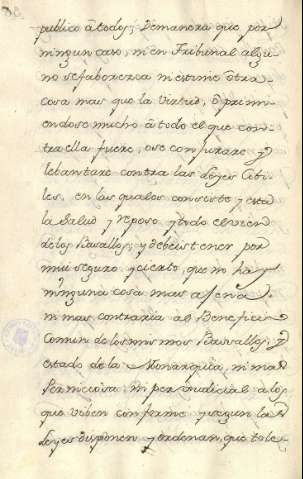 publico â todos; Demanera que por
ningun caso, ni en Tribunal algu
no se faborezca ni estime ôtra
cosa mas que la Virtud, ô primi
endose mucho â todo el que con
tra ella fuere, o se conjurare y
lebantare contra las Leyes Cibi
les, en las quales consiste y esta
la Salud y reposo, y todo el vien
de los Basallos; y debeis tener por
mui seguro y cierto, que no hay
ninguna cosa mas agena,
ni mas contraria al Beneficio
Comun de los mismos Basallos, y
estado de la Monarquia, ni mas
Perniciosa, ni perjudicial a los
que viven conforme y segun las
Leyes disponen y ordenan, que tole